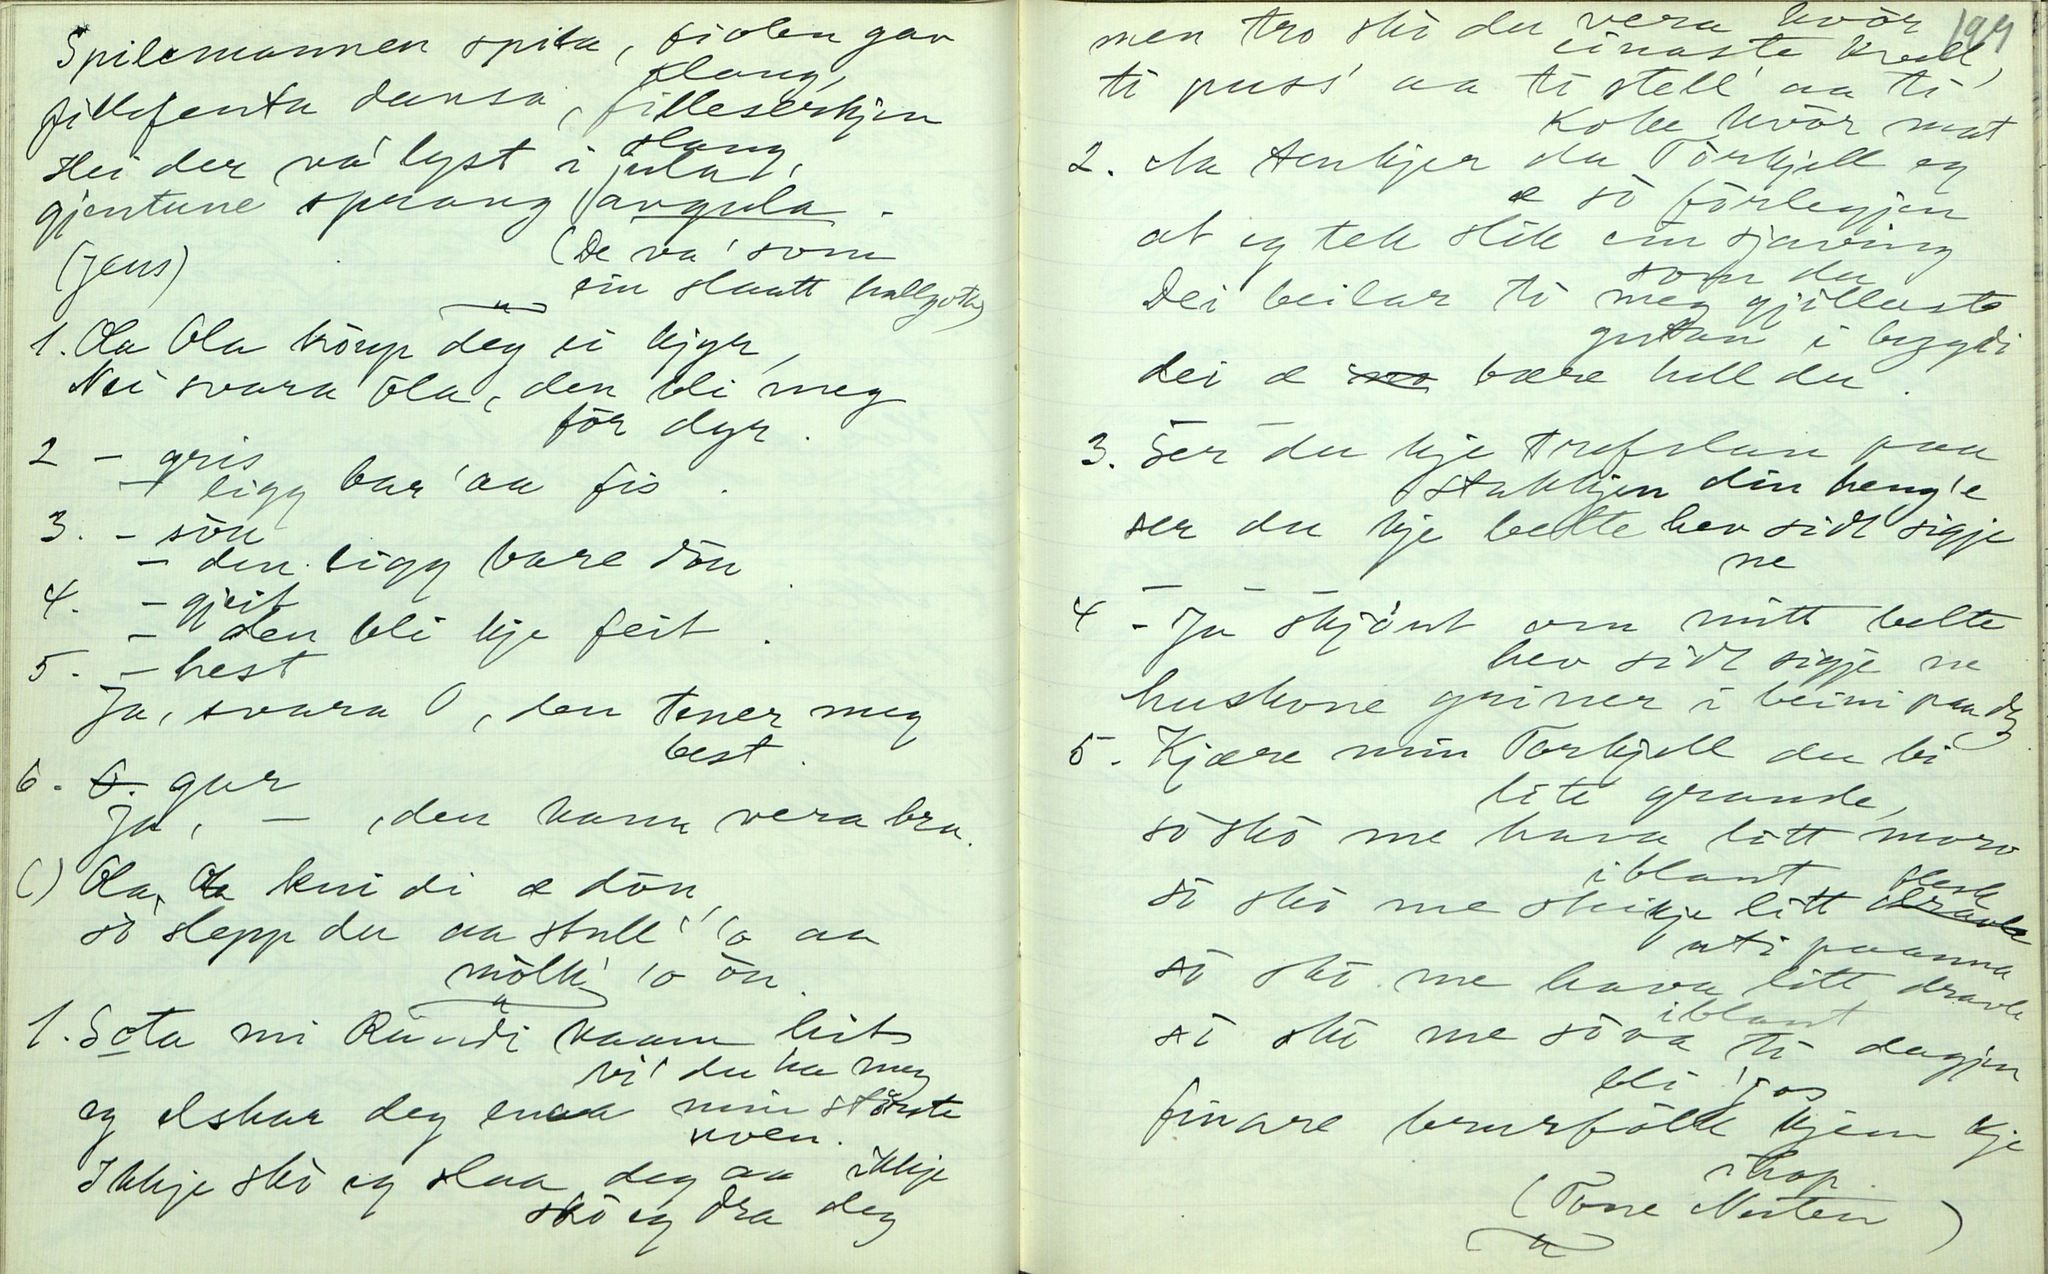 Spilemannen spila, fiolen gav
klang,
fillefenta dansa, filleserkjen
slang,
Hei der va' lyst i jula,
gjentune sprang avgula.
(Jens) (De va' som
ein slaatt hallgota)
1. Ola Ola köyp deg ei kjyr,
Nei svara Ola, den bli meg
för dyr.
2 – gris
– ligg bar' aa fis.
3. – söu
– den ligg bare döu
4. – gjeit
– den bli kje feit.
5. – hest
Ja, svara O, den tener meg
best.
6. O. gar
Ja, – , den kann vera bra.
() Ola, Ola kui di æ döu,
sö slepp du aa stull' 'o aa
mölk' 'o öu.
1. Sota mi Rundi kaam hit
vi' du ha meg
eg elskar deg enaa min störste
uven.
Ikkje skö eg slaa deg aa ikkje
skö eg dra deg
197
men tro skö du vera kvör
einaste kveld,
ti puss' aa ti stell' aa ti
koke kvör mat
2. Aa tenkjer du Törkjell eg
æ sö förlegjen
at eg tek slik ein sjaving
som du
Dei beilar ti meg gjillaste
gutan i bygdi
dei æ bære hell du.
3. Ser du kje trefslan paa
stakkjen din heng'e
ser du kje belte hev sidt sigje
ne
4 – Ja skjönt om mitt belte
hev sidt sigje ne
huskone griner i beini paa deg
5. Kjære min Torkjell du bi
lite grande,
sö skö me hava litt moro
iblant
sö skö me steikje litt flesk
uti paanna
sö skö me hava litt dravle
iblant
sö skö me söva ti dagjen
bli 'jos
finare brurfölk kjem kje
ihop.
(Tone Nuten)